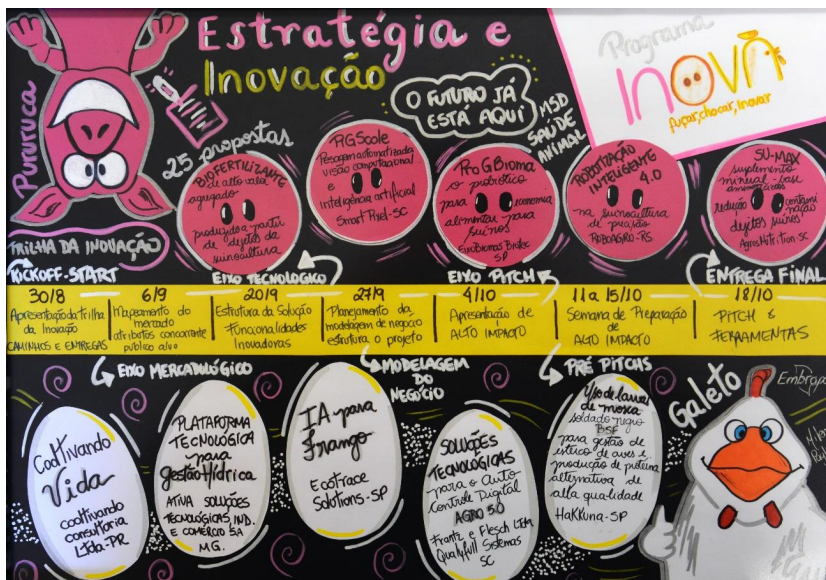 Estratégia e
Inovação
Programa
INOVA
fuçar, chocar, inovar
Pururuca
25 propostas
O FUTURO JÁ
ESTÁ AQUI
MSD
SAÚDE
ANIMAL
BIOFERTILIZANTE
de alto valor
agregado
produzido a partir
de dejetos da
suinocultura
PIGScale
Pesagem automatizada
visão computacional
e
Inteligência artificial
Smart Pixel-SC
PRO GBioma
o probiótico
para economia
alimentar para
suínos
SP
ROBOTIZAÇÃO
INTELIGENTE
4.0
na suinocultura
de precisão
ROBOAGRO-RS
SU-MAX
suplemento
mineral-base
redução contami
nação
dejetos suínos
AgrosNutrition-SC
TRILHA DA INOVAÇÃO
KICKOFF-START
EIXO TECNOLÓGICO
EIXO PITCH
ENTREGA FINAL
30/8
Apresentação da trilha
da Inovação
CAMINHOS E ENTREGAS
6/9
Mapeamento do
mercado
atributos concorrente
público alvo
20/9
Estrutura da Solução
Funcionalidades
Inovadoras
27/9
Planejamento da
modelagem de negócio
estrutura o projeto
4/10
Apresentação de
ALTO IMPACTO
11 a 15/10
Semana de Preparação
de
ALTO IMPACTO
18/10
PITCH &
FERRAMENTAS
EIXO MERCADOLÓGICO
MODELAGEM
DO
NEGÓCIO
PRÉ PITCHS
Galeto
Embrapa
Cooltivando
Vida
cooltivando
consultoria
Ltda-PR
PLATAFORMA
TECNOLÓGICA
para
gestão Hídrica
ATIVA SOLUÇÕES
TECNOLÓGICAS, IND.
E COMÉRCIO SA
MG.
IA para
Frango
EcoTrace
Solutions-SP
SOLUÇÕES
TECNOLÓGICAS
para o Auto
Controle Digital
AGRO 5.0
Frantz e Flesch Ltda
Qualyfull Sistemas
SC
Uso de larvas
de mosca
soldado negro
BSF
para gestão de
esterco de aves e
produção de proteína
alternativa de
alta qualidade
Hakkuna-SP